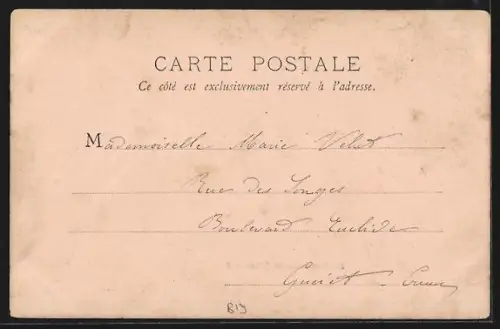 CARTE POSTALE
Ce côté est exclusivement réservé à l'adresse.
Mademoiselle Marie
Rue des
Boulevard
Guéret - Creuse
B19